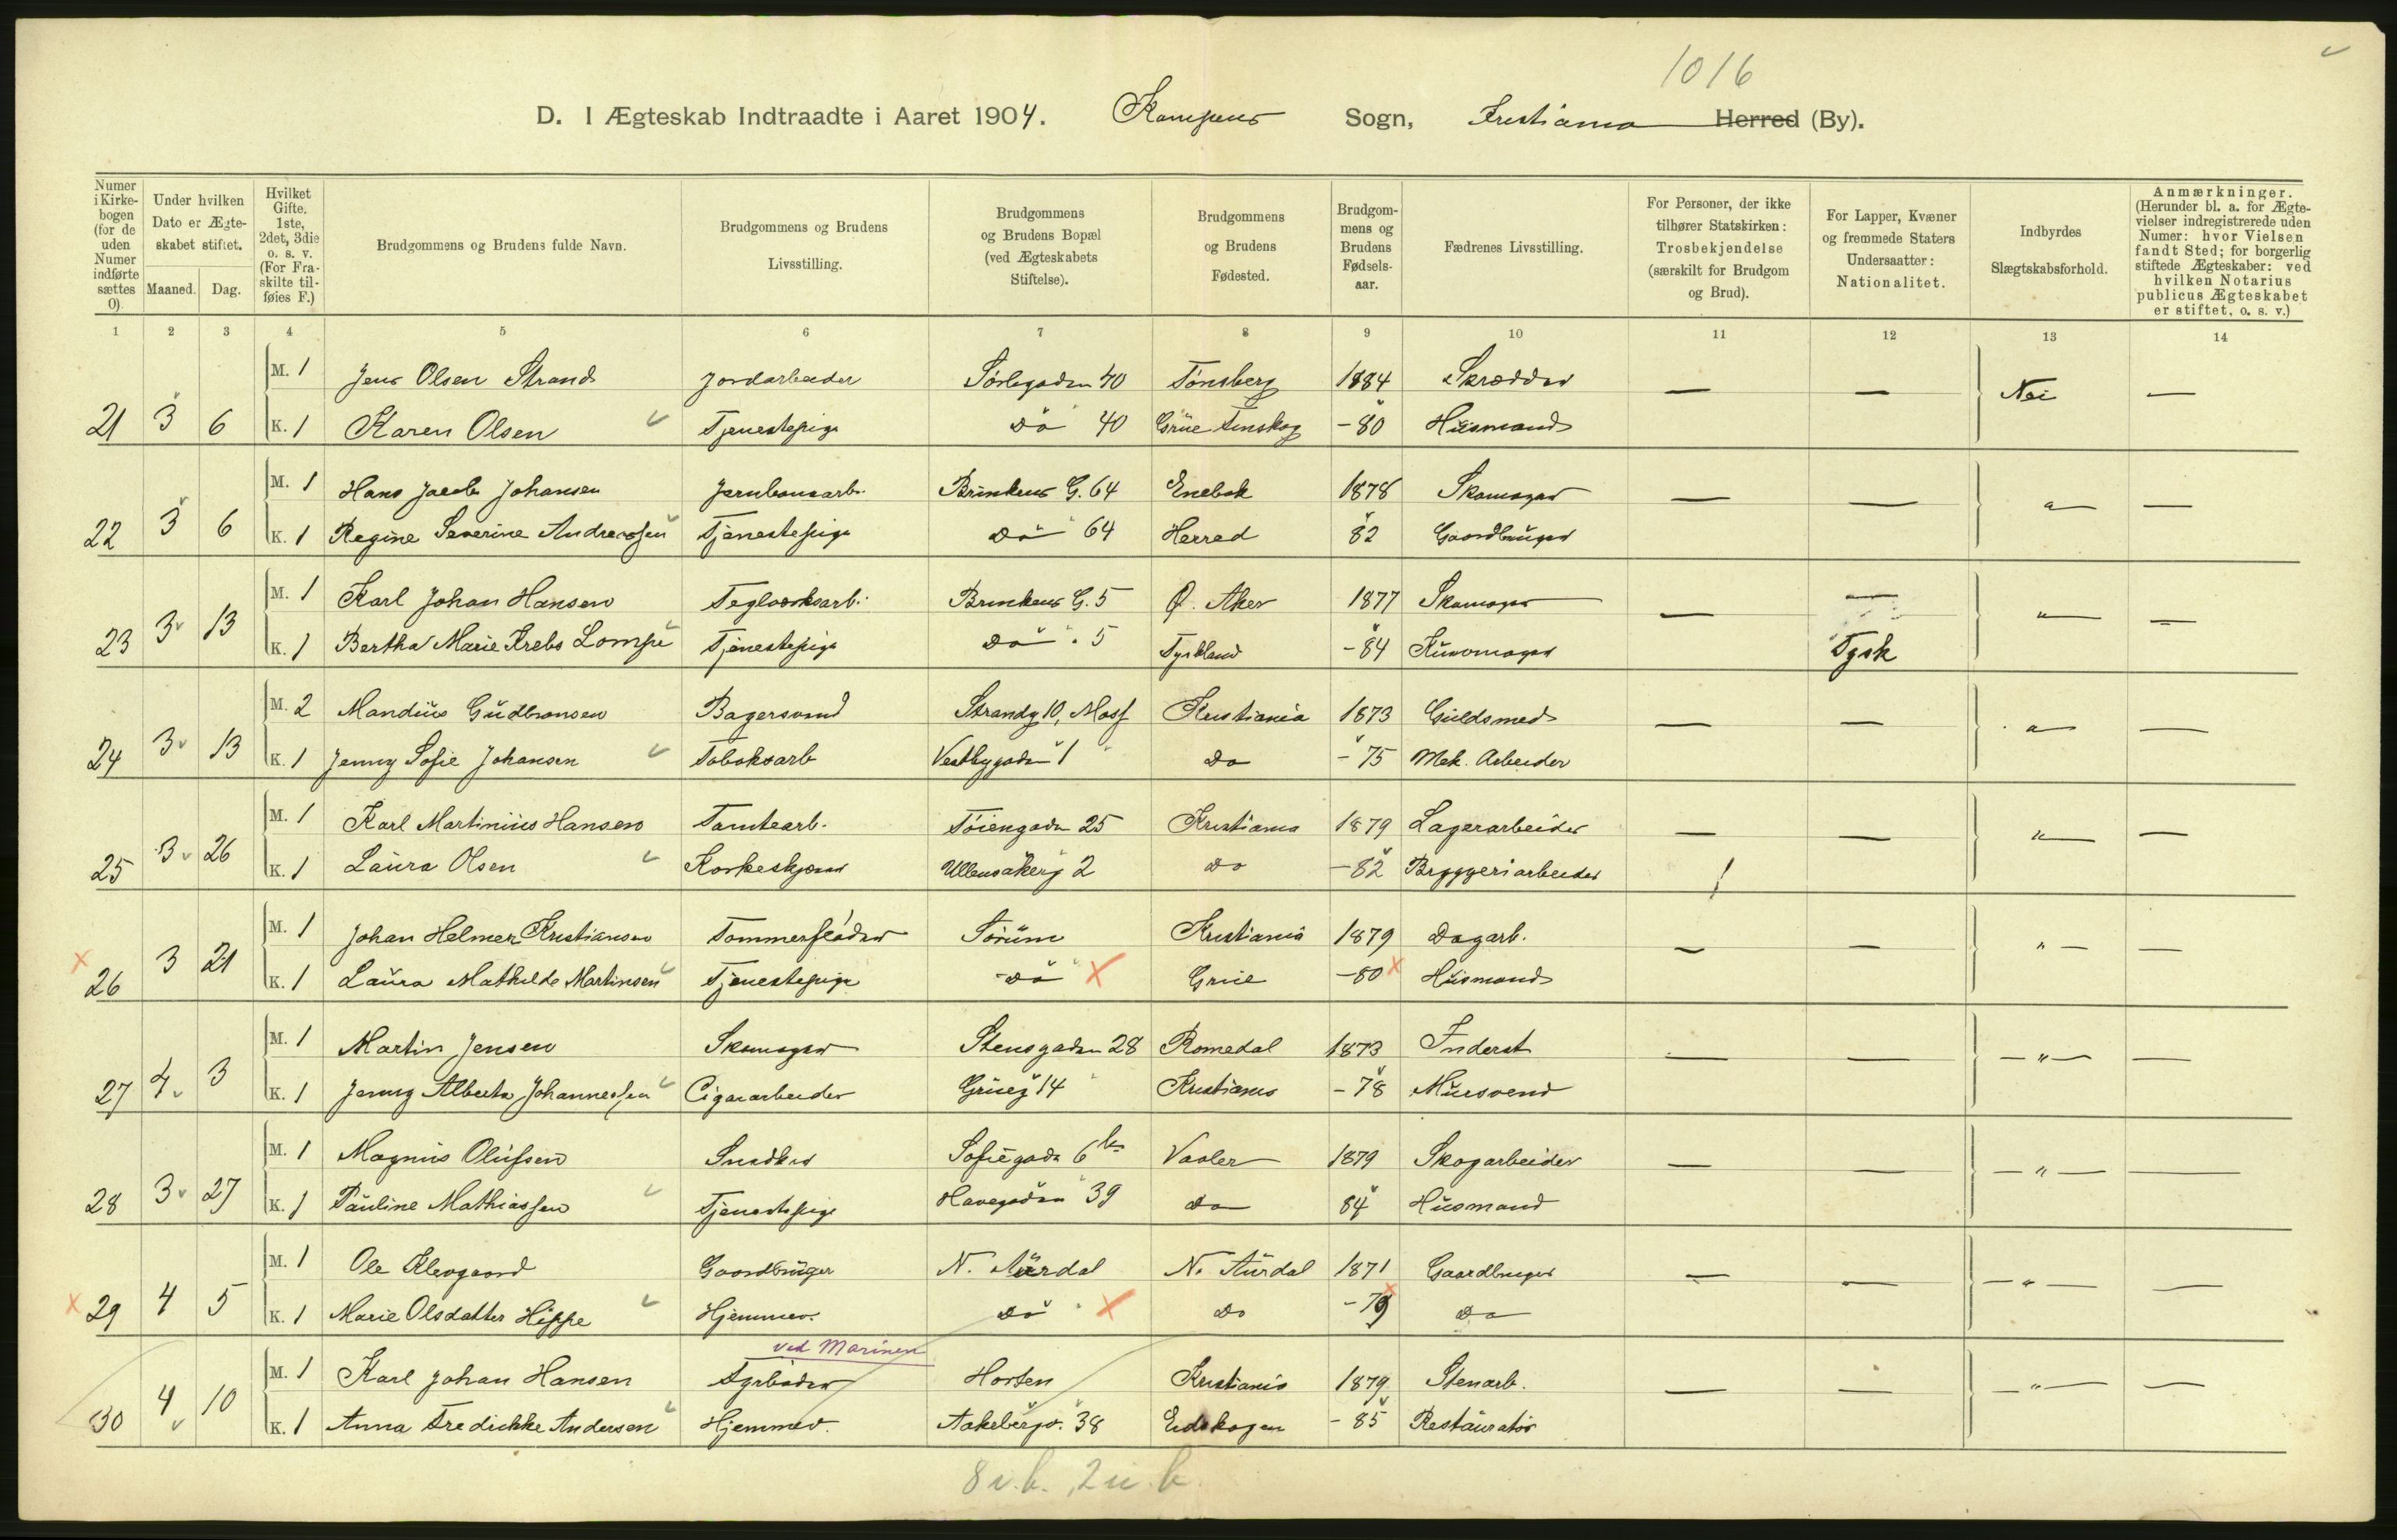 1016
D. I Ægteskab Indtraadte i Aaret 1904. Kampens Sogn, Kristiania Herred (By).
Numer i Kirkebogen (for de uden Numer indførte sættes 0)
Under hvilken Dato er Ægteskabet stiftet.
Maaned. Dag.
Hvilket Gifte. 1ste, 2det, 3die o. s. v. (For Fraskilte tilføies F.)
Brudgommens og Brudens fulde Navn.
Brudgommens og Brudens Livsstilling.
Brudgommens og Brudens Bopæl (ved Ægteskabets Stiftelse).
Brudgommens og Brudens Fødested.
Brudgommens og Brudens Fødselsaar.
Fædrenes Livsstilling.
For Personer, der ikke tilhører Statskirken: Trosbekjendelse (særskilt for Brudgom og Brud).
For Lapper, Kvæner og fremmede Staters Undersaatter: Nationalitet.
Indbyrdes Slægtskabsforhold.
Anmærkninger. (Herunder bl. a. for Ægtevielser indregistrerede uden Numer: hvor Vielsen fandt Sted; for borgerlig stiftede Ægteskaber: ved hvilken Notarius publicus Ægteskabet er stiftet, o. s. v.)
1 2 3 4 5 6 7 8 9 10 11 12 13 14
M. 1 Jens Olsen Strand Jordarbeider Sörligaden 40 Tönsberg 1884 Skrædder — — Nei —
21 3 6 K. 1 Karen Olsen Tjenestepige Do 40 Grue Finskog -80 Husmand
M. 1 Hans Jacob Johansen Jernbanearb. Brinkens G. 64 Enebak 1878 Skomager — — " —
22 3 6 K. 1 Regine Severine Andreassen Tjenestepige Do 64 Herred 82 Gaardbruger
M. 1 Karl Johan Hansen Teglverksarb. Brinkens G. 5 Ø. Aker 1877 Skomager — — " —
23 3 13 K. 1 Bertha Marie Krebs Lompe Tjenestepige Do " 5 Tyskland -84 Tysk
M. 2 Mandius Gudbransen Bagersvend Strandg 10, Moss Kristiania 1873 Guldsmed — — " —
24 3 13 K. 1 Jenny Sofie Johansen Tobaksarb Vestbygaden 1 Do -75 Mek. Arbeider
M. 1 Karl Martinius Hansen Tomtearb. Töiengaden 25 Kristiania 1879 Lagerarbeider — — " —
25 3 26 K. 1 Laura Olsen Korkeskjærer Ullensakerg 2 Do -82 Bryggeriarbeider
M. 1 Johan Helmer Kristiansen Tømmerfløder Sörum Kristiania 1879 Dagarb. — — " —
x 26 3 21 K. 1 Laura Mathilde Martinsen Tjenestepige Do x Grue -80 x Husmand
M. 1 Martin Jensen Skomager Stensgaden 28 Romedal 1873 Inderst — — — " — —
27 4 3 K. 1 Jenny Alberta Johannessen Cigararbeider Grueg 14 Kristiania -78 Mursvend
M. 1 Magnus Olufsen Snedker Sofiegade 6 b Vaaler 1879 Skogarbeider — — — " — —
28 3 27 K. 1 Pauline Mathiassen Tjenestepige Havegaden 39 Do 84 Husmand
M. 1 Ole Klevgaard Gaardbruger N. Aurdal N. Aurdal 1871 Gaardbruger — — — " — —
x 29 4 5 K. 1 Marie Olsdatter Hippe Hjemmev. Do x Do -79 x Do
ved Marinen
M. 1 Karl Johan Hansen Fyrbøder Horten Kristiania 1879 Stenarb. — — — " — —
30 4 10 K. 1 Anna Fredrikke Andersen Hjemmev. Aakebergv. 38 Eidskogen -85 Restauratør
8 i.b. 2 u.b.